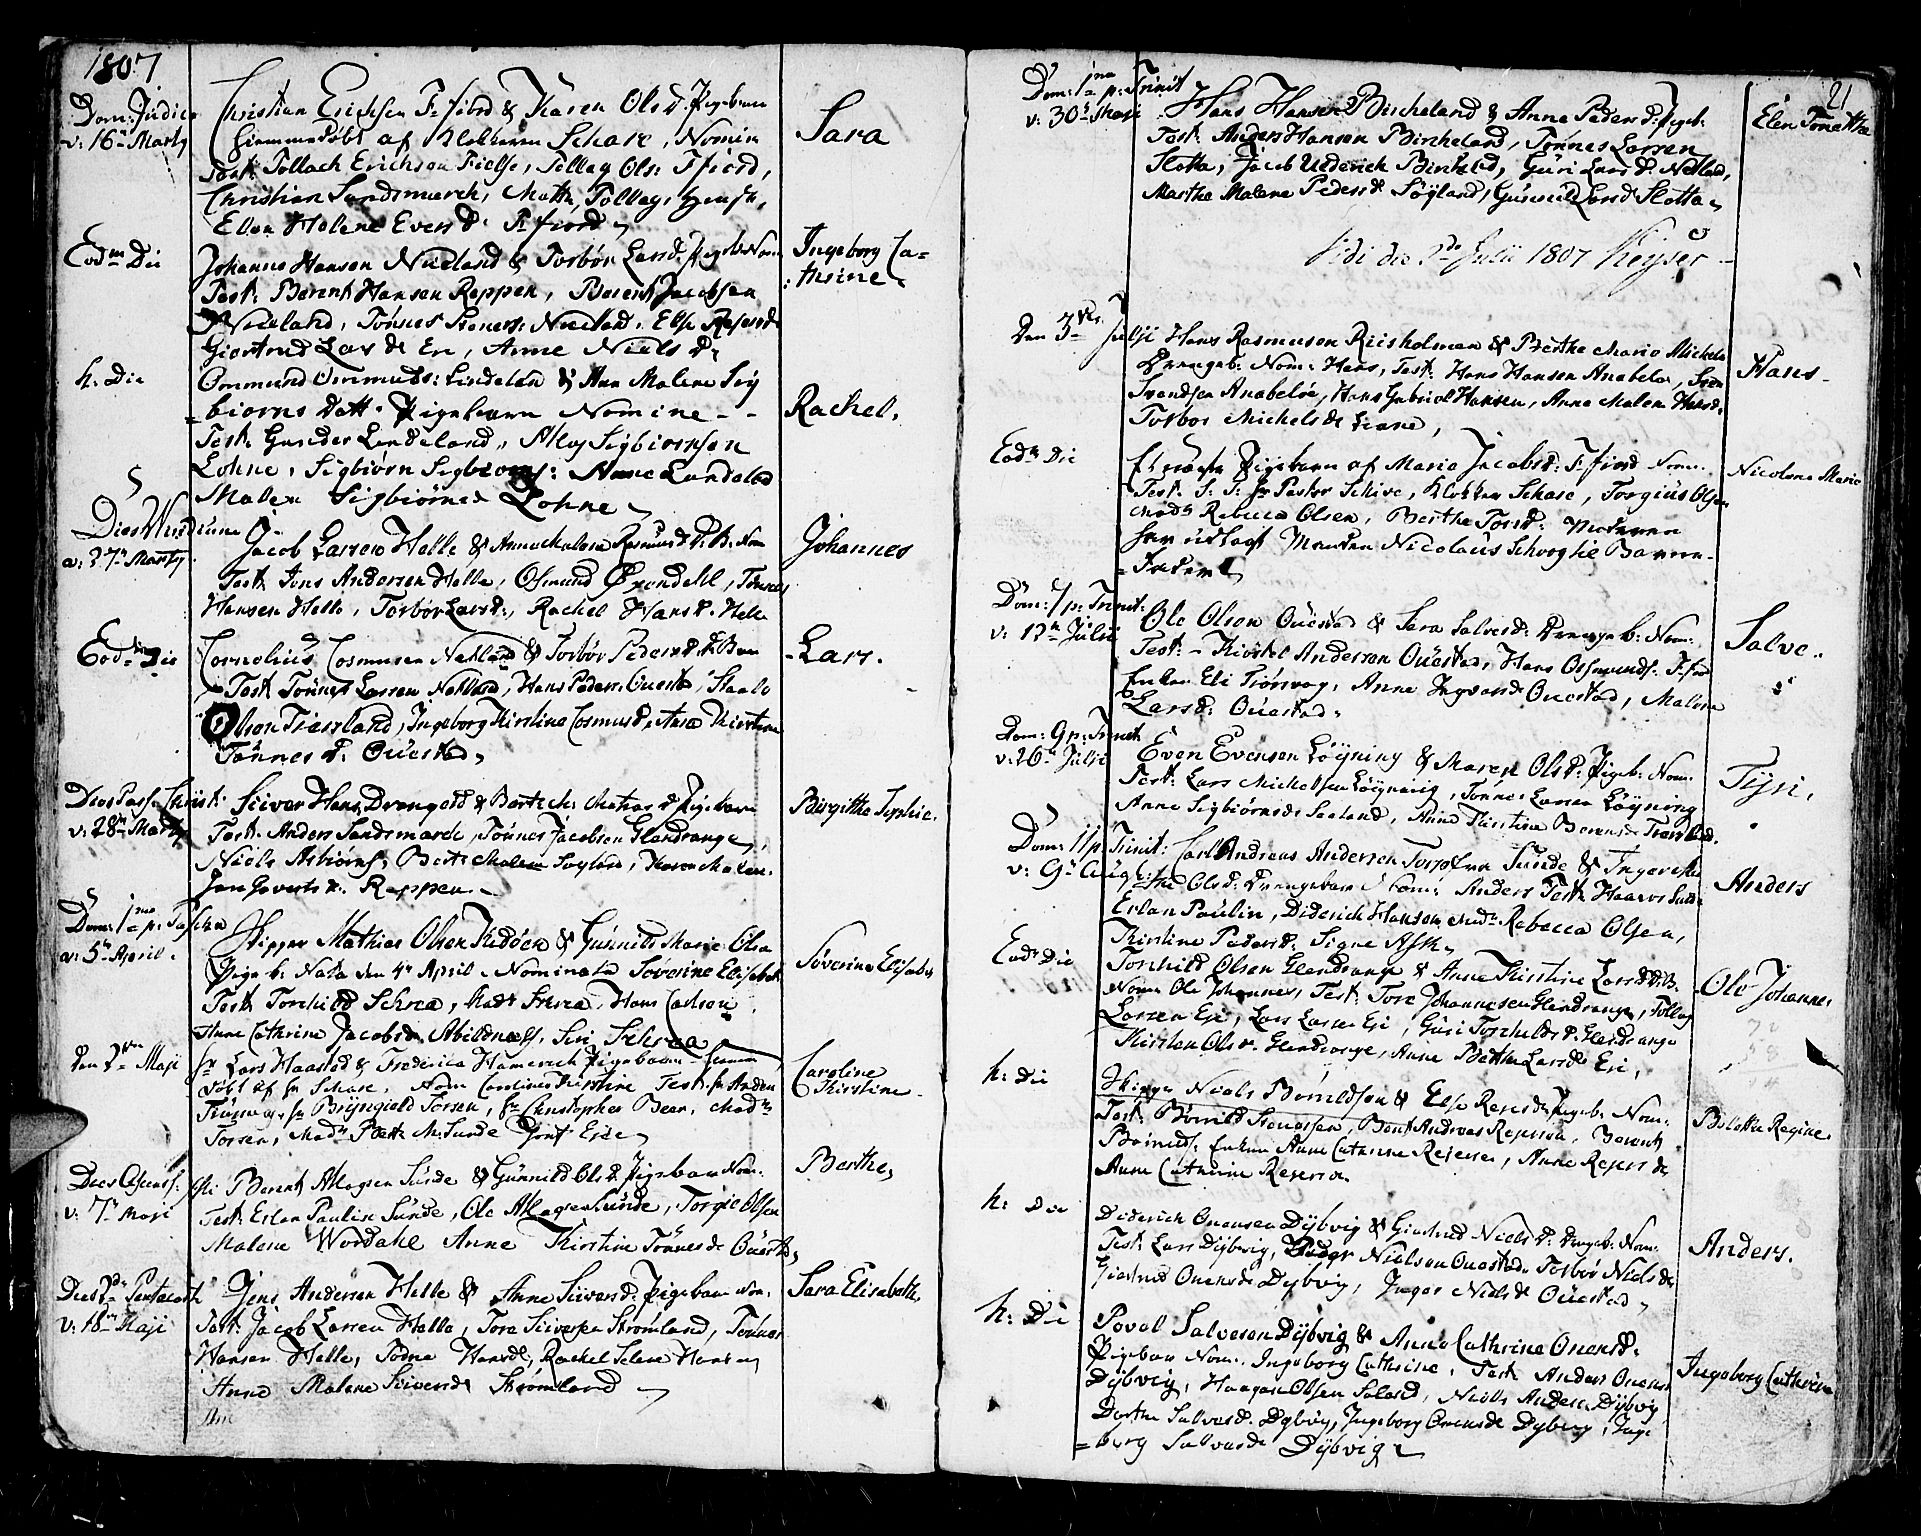 1807
Dom: Judica
v: 16n Marty
Christian Erichsen F: fiord & Karen Olsd. Pigebarn
hiemmedøbt af Klokkeren Schare, Nomin
Test: Tollach Erichson Fielse, Tollag Ols: F fiord,
Christian Sandsmarck, Mette Tollags
Elen Helene Evers d. F: fiord
Sara
Eodm Die
Johannes Hansen Nueland & Torbør Larsd. Pigeb. Nom
Test: Berent Hansen Reppen, Berent Jacobsen
Nueland, Tønnes Nueland, Else Rejersd.
Giertrud Lars d. Ere, Anne Niels d.
Ingeborg Ca=
thrine
h: Die
Ommund Ommunds: Lindeland & Ane Malene Sig
=biørns Datt. Pigebarn Nomine - -
Test: Gunder Lindeland, Aslag Sigbiørnsen
Lohne, Sigbiørn Sigbiørns: Anne Lundeland
Malene Sigbiørnsd Lohne
Rachel.
Dies Viridium
a: 27n Marty
Jacob Larsen Helle & Anne Malene Rasmusd. D. B. Nom
Test: Jens Andersen Helle, Osmund Øxendahl, Tønnes
Hansen Helle, Torbør Larsd., Rachel Hansd. Helle
Johannes
Eodm Die
Cornelius Cosmusen Netland & Torbør Pedersd. D: Barn
Test: Tønnes Larsen Netland, Hans Peders: Ouestad, Staale
Olson Tiersland, Ingeborg Kirstine Cosmusd, Anna Kirstine
Tønnes D. Ouestad
Lars.
Dies Pass: Christi
v: 28n Marty
Siver Hans: Drangeid & Berte Mathias d. Pigebarn
Test: Anders Sandsmarck, Tønnes Jacobsen Glendrange,
Niels Asbiørns: Berte Malene Sogland, Karen Malene
Reppen
Birgitha Sophie
Dom: 1ma p: Pascha
a: 5n April
Skipper Mathias Olsen Kedøen & Gunnild Marie Olsd
Pigeb: Nata den 4n April. Nominata Soverine Elisabeth
Test: Torchild Schrea, Mad. Schrea, Hans Carlson
Anne Cathrine Jacobsd. Abildnæs, Siri Schrea
Soverine Elisabeth
den 2den Maji
Hr Lars Haastad & Frederica Hamerich Pigebarn hiemme
døbt af Hr Schare, Nom Caroline Kirstine Test: Hr Anders
Hr Bryngield Torsen, Hr Christopher Beer, Mad:
Torsen, Mad: Berte M. Sunde
Caroline
Kirstine
Dies Ascens:
v: 7n Maji
Berent Aslagsen Sunde & Gunnild Ols D. Pigebarn Nom:
Test: Erlan Paulin Sunde, Ole Aslagsen Sunde, Torgie Olsen
Malene Wordahl Anne Kirstine Tønnesd. Ouestad
Berthe
Dies 2da Pentecost
v: 18n Maji
Jens Andersen Helle & Anne Siversd: Pigebarn Nom.
Test: Jacob Larsen Helle, Tore Siversen Strømland, Tønnes
Hansen Helle, Hansd., Rachel Helene Hansd
Anne Malene Siversd. Strømland
Sara Elisabeth
21
Dom: 1ma p: Trinit
v: 30n Maji
Hans Hansen Bircheland & Anne Peders d. Pigeb.
Test: Anders Hansen Bircheland, Tønnes Larsen
Slotta, Jacob Ulderich Birkeld, Guri Larsd. Netland,
Marthe Malene Peders d. Søyland, Gunnild Larsd Slotta
Elen Tonethe
Vidi die 2da Julii 1807 Keyser
Den 3die Julii
Hans Rasmusen Reisholmen & Berthe Marie Michels
Drengeb: Nom: Hans, Test: Hans Hansen Anabeløe, Sven
Svendsen Anabeløe, Hans Gabriel Hansen, Anne Malene Hansd.
Torbor Michels d.
Hans
Eodm Die
Et uægte Pigebarn af Marie Jacobsd: F: fiord Nom:
Test: S. T. Hr Pastor Schive, Klokker Schare, Torgius Olsen
Madm Rebecca Olsen, Berthe Torsd: Moderen
har udlagt Nicolaus Barne=
=Fader
Nicolene Marie
Dom: 7 p: Trinit:
v: 12n Julii
Ole Olson Ouestad & Sara Salvesd: Drengeb: Nom:
Test: Kirstel Andersen Ouestad, Hans Osmunds: F: fiord
Enken Eli Tiørsvog, Anne Ingvors d. Ouestad, Malene
Larsd: Ouestad
Salve.
Dom: 9 p: Trinit:
v: 26n Julii
Even Evensen Løyning & Maren Olsd: Pigeb: Nom:
Test: Lars Michelsen Løyning, Tønnes Larsen Løyning
Anne Sigbiørnsd. Seeland, Anne Kirstine Berentsd. Tiersland.
Tyri.
Dom: 11 p: Trinit:
v: 9n Aug:
Carl Andreas Andersen Torp Sunde & Ingeborg
Olsd: Drengebarn Nom: Anders Test: Haavor Sunde
Erlan Paulin, Diderich Hansen, Madm Rebecca Olsen,
Kirstine Pedersd. Signe Ask
Anders
Eodm Die
Torkild Olsen Glendrange & Anne Kirstine Larsd D: B.
Nom: Ole Johannes, Test: Tore Johannesen Glendrange, Tollag
Larsen Eie, Lars Larsen Eie, Guri Torkilds d. Glendrange
Kirsten Ols d. Glendrange, Anne Berthe Larsd. Eie,
Ole Johannes
h: Die
Skipper Niels Børnildsen & Else Rejersd, Pigeb: Nom:
Test: Børnild Bent Andreas Rejersen, Berent
Enken Anne Cathrine Rejersen, Anne Rejers d.
Anne Cathrine Rejersen
Bolette Regine
h: Die
Diderich Onensen Dybvig & Giertrud Niels D. Drengeb: Nom:
Test: Lars Dybvig, Peder Nielsen Ouestad, Torbør Niels d.
Giertrud Onensd. Dybvig, Inger Niels d. Ouestad
Anders.
h: Die
Povel Salvesen Dybvig & Anne Cathrine Onensd.
Pigebarn Nom: Ingeborg Cathrine, Test: Anders Onens:
Dybvig, Haagen Olsen Seland, Niels Anders: Dybvig
Dorthe Salvesd. Dybvig, Ingeborg Onensd. Dybvig, Inge
=borg Salvesd. Dybvig
Ingeborg Cathrine